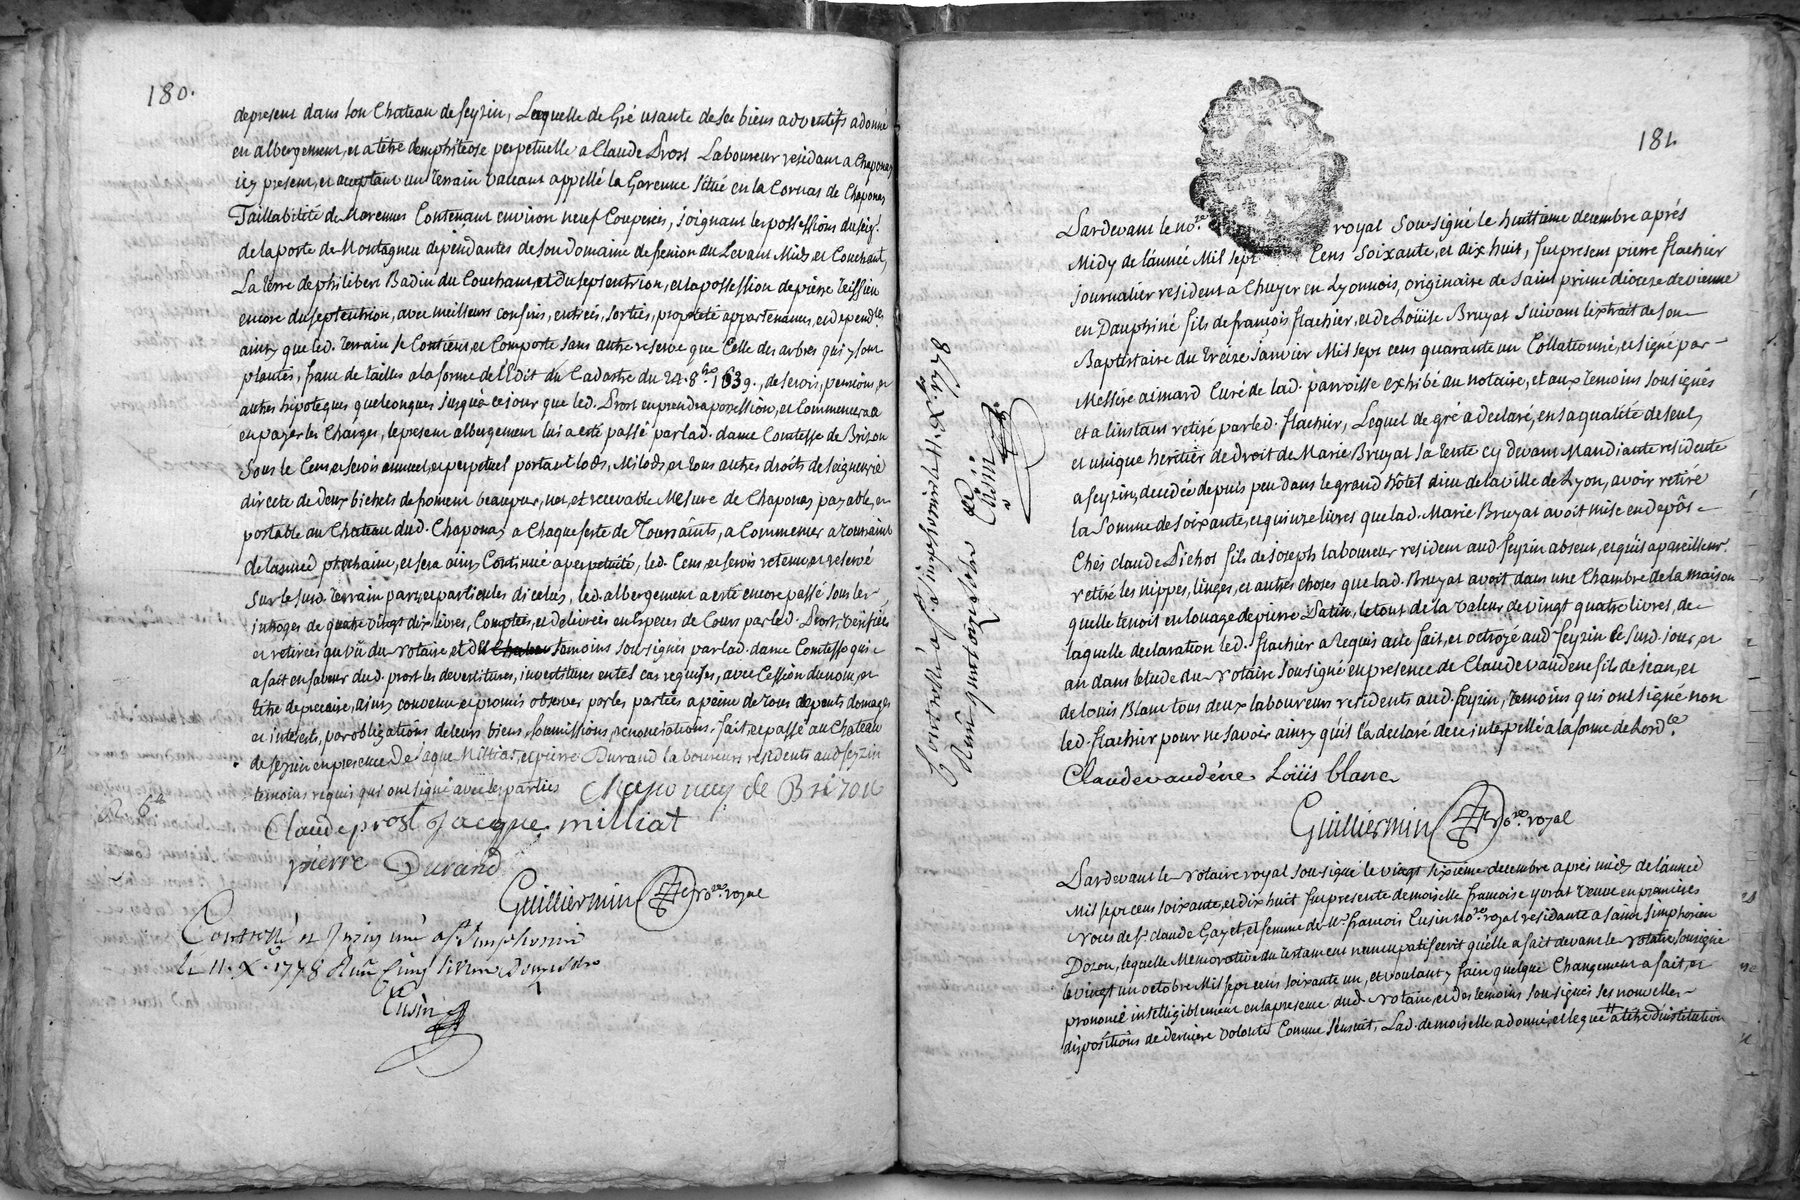 180.
depresent dans son Chateau de feyzin, Laquelle de Gré usante de ses biens adventifs a donné
en albergement, et a titre demphiteose perpetuelle a Claude Prost Laboureur residant a Chaponay
icy present, et acceptant un terrain vaccant appellé la Garenne Situé en la Corvas de Chaponay
Taillabilité de Marennes Contenant environ neuf Couperées, joignant les possessions du seigr
de la porte de Montagneu dependantes de son Domaine de du Levant Midy et Couchant,
La terre de philibert Badin du Couchant, et du septentrion, et la possession de pierre Teissieu
encore du septentrion, avec meilleurs confins, entrées, sorties, proprieté appartenances, et dependces
ainsy que led. terrain se Contient, et Comporte sans autre reserve que Celle des arbres qui y sont
plantés, franc de tailles a la forme de l'Edit du Cadastre du 24. 8bre 1639., de servis, pensions, et
autres hipoteques quelconques jusqu'a ce jour que led. Prost en prendra possession, et Commencera a
en payer les Charges, le present albergement lui a esté passé par lad. dame Comtesse de Brizon
Sous le Cens, et servis annuel, et perpetuel portant lods, Milods, et tous autres droits de seigneurie
directe de deux bichets de froment beau pur, net, et recevable Mesure de Chaponay payable, et
portable au Chateau dud. Chaponay a Chaque feste de Toussaints, a Commencer a toussaint
de l'année prochaine, et sera ainsy Continué a perpetuité, led. Cens, et servis retenu, et reservé
Sur le susd. terrain par, et particules dicelui, led. albergement a esté encore passé sous les
introges de quatre vingt dix livres, Comptées, et delivrées en Especes de Cours par led. Prost, verifiées
et retirées au vû du Notaire et des temoins sousignés par lad. dame Comtesse qui
a fait en faveur dud. prost les devestitures, investitures en tel cas requises, avec Cession du nom, et
titre de precaire, ainsy convenu et promis observer par les parties a peine de tous depents domages
et interests, par obligations de leurs biens, soumissions, renonciations, fait, et passé au Chateau
de feyzin en presence De Jaque Milliat, et pierre Durand laboureurs residents aud. feyzin
temoins requis qui ont signé avec les parties Chaponay de Brizon
Claude prost Jacque milliat
pierre Durand
Guilliermin Nore royal
Controllé et a St simphorien
le 11. Xbre 1778 livres
Cusin
Controllé a St simphorien le 11. Xbre 1778
Cusin
181.
Pardevant le nore royal Sousigné le huitieme decembre aprés
Midy de l'année Mil sept Cens Soixante, et dix huit, fut present pierre flachier
journalier resident a Chuyer en Lyonnois, originaire de Saint prime dioceze de vienne
en Dauphiné fils de françois flachier, et de Loüise Bruyat suivant l'extrait de son
Baptistaire du treize janvier Mil sept cens quarante un Collationné, et signé par
Messire aimard Curé de lad. parroisse exhibé au notaire, et aux temoins sousignés
et a l'instant retiré par led. flachier, Lequel de gré a declaré, en sa qualité de seul,
et unique heritier de Droit de Marie Bruyat sa tente cy devant Mandiante residente
a feyzin, decedée depuis peu dans le grand hôtel dieu de la ville de Lyon, avoir retiré
la Somme de soixante, et quinze livres que lad. Marie Bruyat avoit mise en depôs
Chés claude Pichot fils de joseph laboureur resident aud. feyzin absent, et qu'il a pareillemt
retiré les nippes, linges, et autres choses que lad. Bruyat avoit dans une Chambre de la maison
quelle tenoit en louage de pierre Patin, le tout de la valeur de vingt quatre livres, de
laquelle declaration led. flachier a requis acte fait, et octroyé aud. feyzin le susd. jour, et
an dans l'etude du Notaire sousigné en presence de Claude vaudene fils de jean, et
de louis Blanc tous deux laboureurs residents aud. feyzin, temoins qui ont signé non
led. flachier pour ne savoir ainsy qu'il l'a declaré de ce interpellé a la forme de Lordce
Claude vaudéne Loüis blanc
Guilliermin Nore royal
Pardevant le Notaire royal sousigné le vingt sixieme decembre aprés midy de l'année
Mil sept cens soixante, et dix huit fut presente demoiselle francoise yvrat veuve en premieres
Noces de sr claude Gayet, et femme de Mr francois Cusin nore royal residante a Saint simphorien
Dozon, lequelle Memorative du testament nuncupatif ecrit qu'elle a fait devant le notaire sousigné
le vingt un octobre Mil sept cens soixante un, et voulant y faire quelque Changement a fait, et
prononcé intelligiblement en la presence dud. Notaire, et des temoins sousignés ses nouvelles
dispositions de derniere volonté Comme s'ensuit, Lad. demoiselle a donné, et legué a titre d'institution